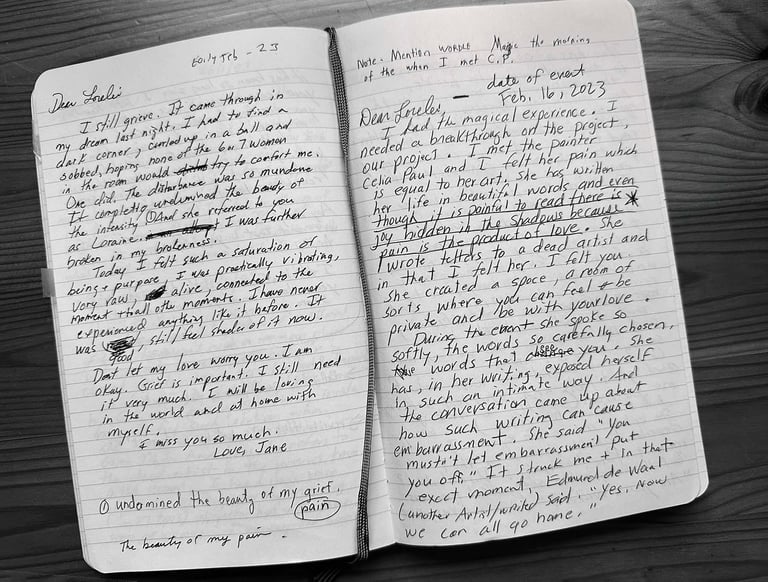 Early Feb - 23
Dear Lorelei
I still grieve. It came through in
my dream last night. I had to find a
dark corner, curled up in a ball and
sobbed, hoping none of the 6 or 7 women
in the room would try to comfort me.
One did. The disturbance was so mundane
It completly undermined the beauty of
the intensity. ① And she referred to you
as Loraine. I was further
broken in my brokenness.
Today I felt such a saturation of
being + purpose. I was practically vibrating,
very raw, alive, connected to the
moment + all other moments. I have never
experienced anything like it before. It
was good, still feel shades of it now.
Dont let my love worry you. I am
okay. Grief is important. I still need
it very much. I will be loving
in the world and at home with
myself.
I miss you so much.
Love, Jane
① undermined the beauty of my grief.
pain
The beauty of my pain.
Note. Mention WORDLE Magic the morning
of the when I met C.P.
date of event
Feb. 16, 2023
Dear Lorelei,
I had the magical experience. I
needed a breakthrough on the project,
our project. I met the painter
Celia Paul and I felt her pain which
is equal to her art, she has written
her life in beautiful words and even
though it is painful to read there is *
joy hidden in the shadows because
pain is the product of love. She
wrote letters to a dead artist and
in that I felt her. I felt you.
She created a space, a room of
sorts where you can feel + be
private and be with your love.
During the event she spoke so
softly, the words so carefully chosen,
words that you. She
has, in her writing, exposed herself
in such an intimate way. And
the conversation came up about
how such writing can cause
embarrassment. She said "You
mustn't let embarrassment put
you off." It struck me + in that
exact moment, Edmund de Waal
(another Artist/writer) said, "Yes, now
we can all go home."